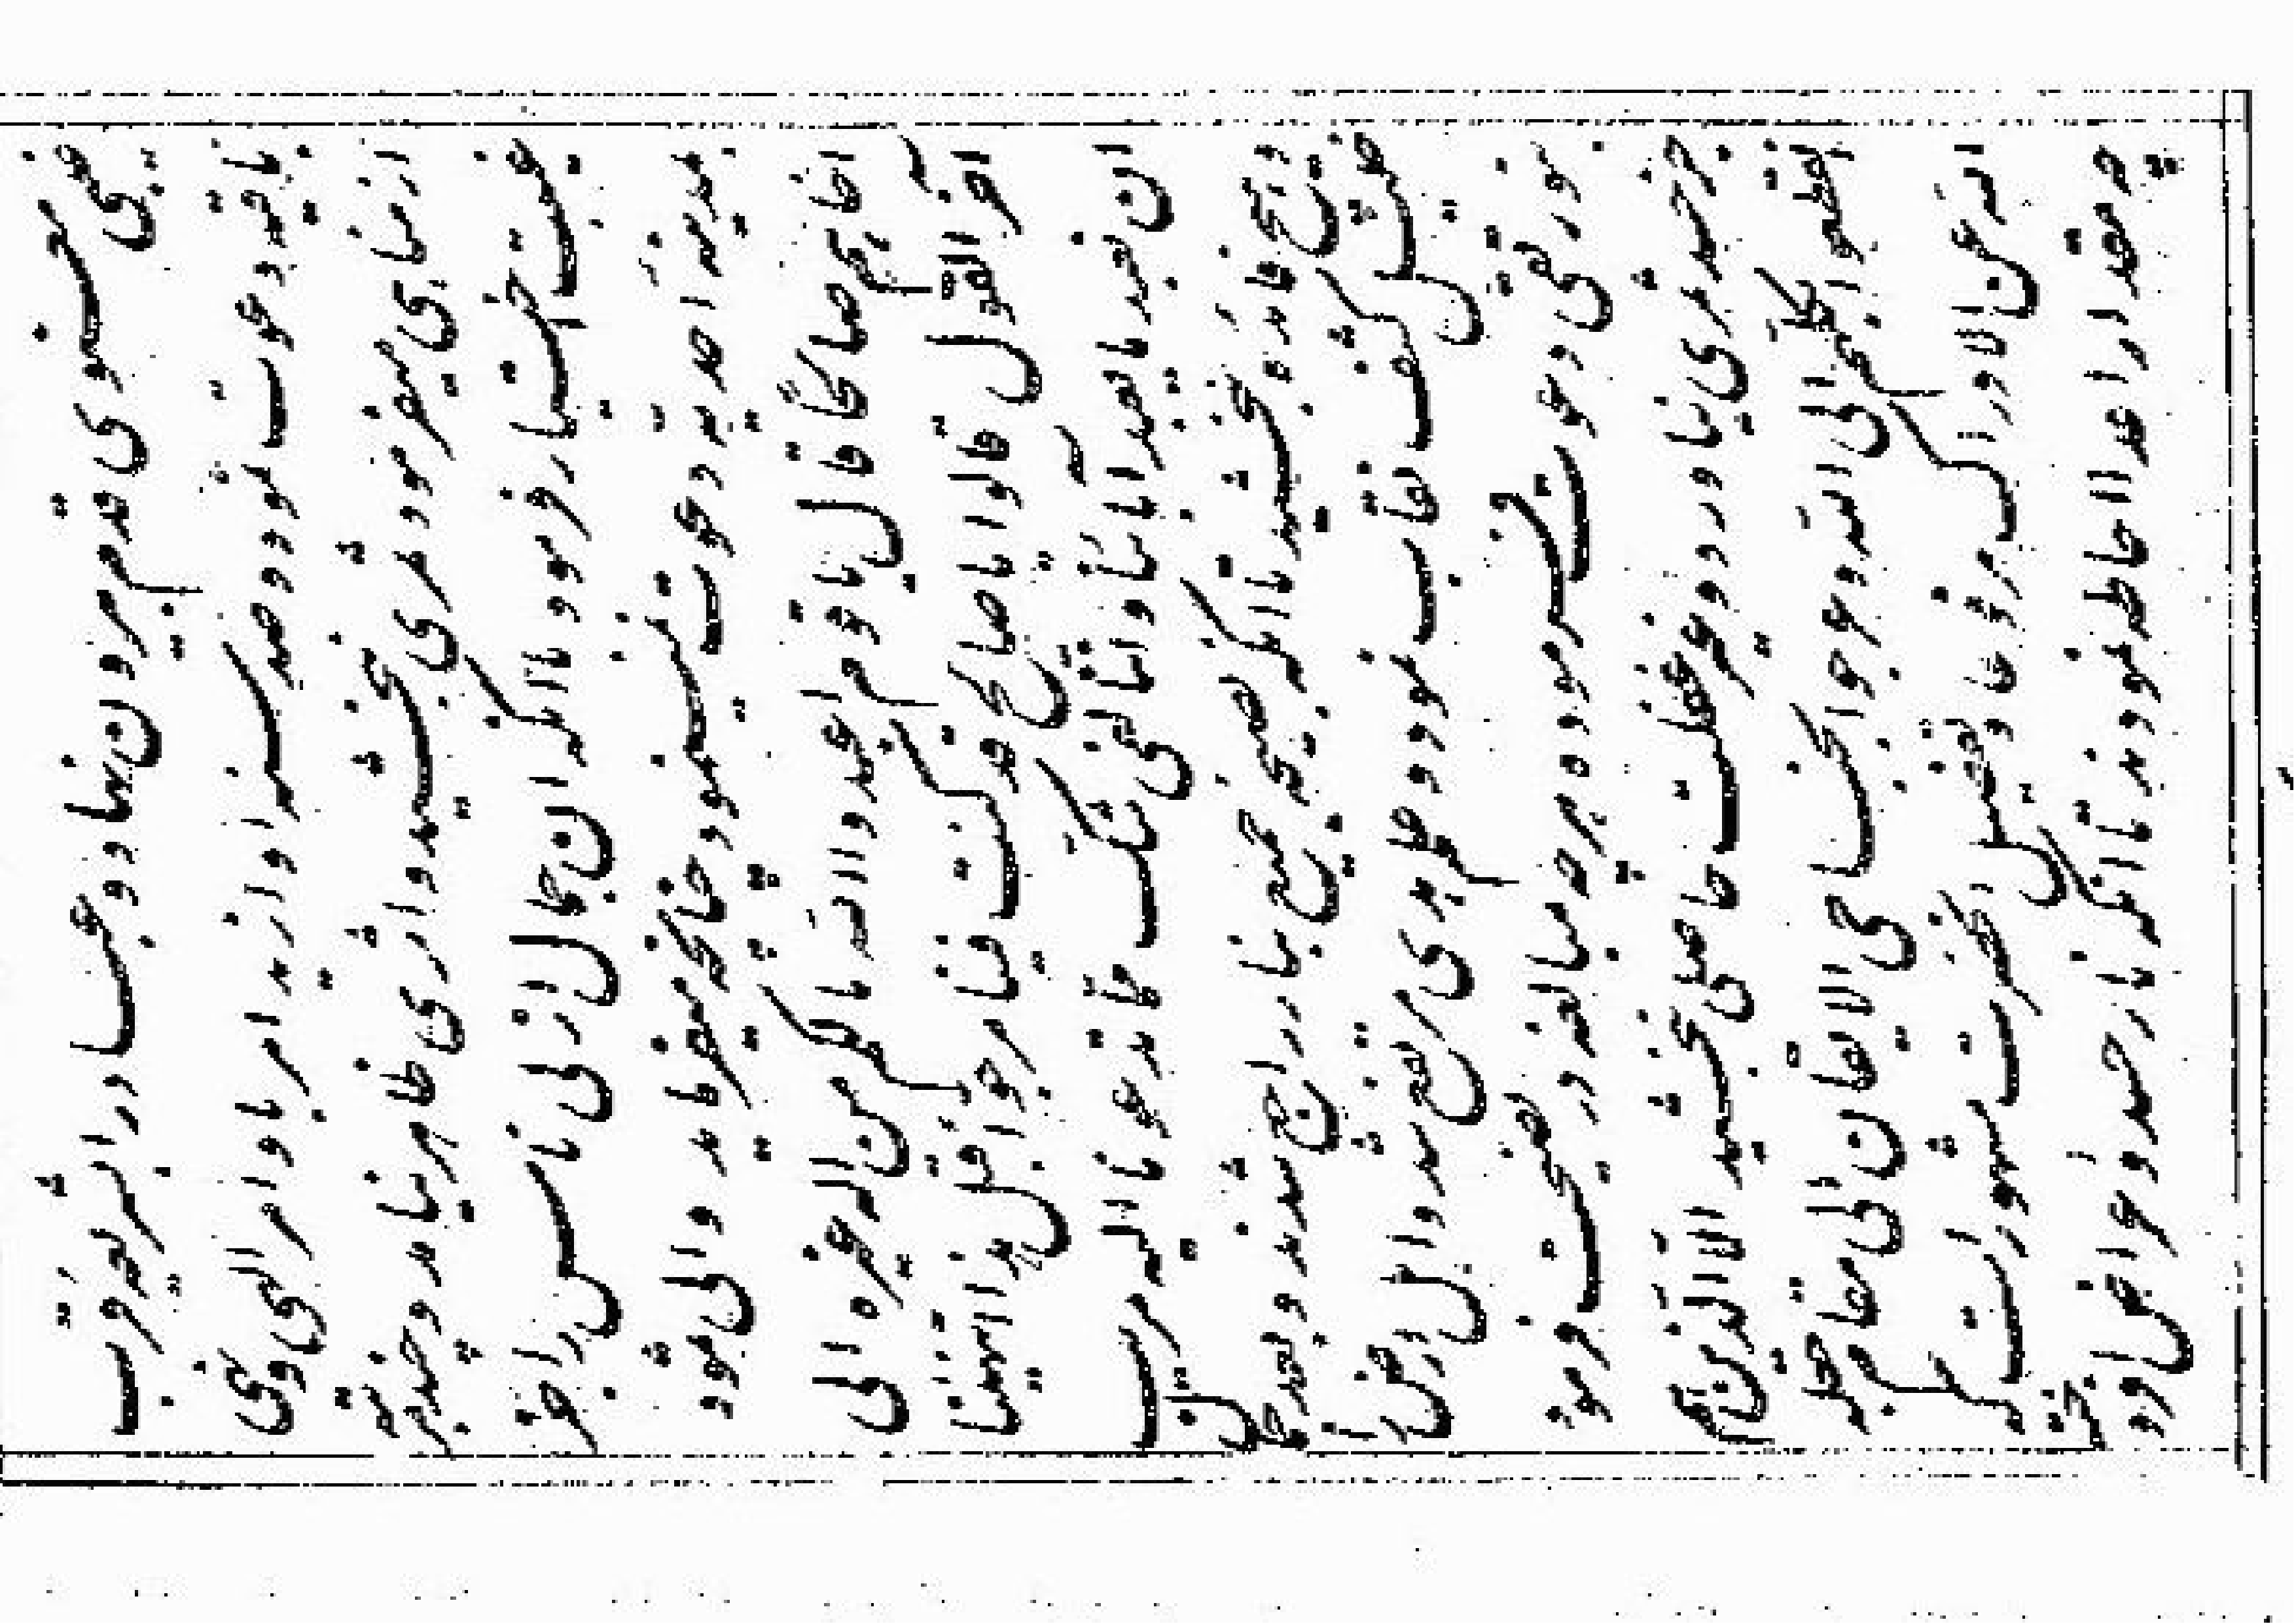 غیبی معنوی قدم بیرون نهاد و عباد را بشریعه قرب
باقیه دعوت نمود و صد سنه او ازید امر باوامر الهی و نهی
از مناهی میفرمود ثمری نبخشید و اثری ظاهر نیامد و چند مرتبه
غیبت اختیار فرمود با آنکه ان جمال ازلی ناس را جز
بمدینه احدیّه دعوت نمینمود چنانچه میفرماید والی ثمود
اخاهم صالحاً قال یا قوم اعبدوا اللّه مالکم من اله غیره الی
اخر القول قالوا یا صالح قد کنت فینا مرجوا قبل هذا اتنهینا
ان نعبد ما یعبد اباؤنا و انّنا لفی شکّ ممّا تدعونا الیه مریب
و هیچ فایده نبخشید تا آنکه بصیحه جمیع بنار راجعون شدند و بعد جمال
خلیل کشف نقاب نمود و علم هدی مرتفع شد و اهل ارض را
بنور تقی دعوت فرموده هرچه مبالغه در نصیحت فرمود
جز حسد ثمری نیاورد و غیر غفلت حاصلی نبخشید الّا الّذینهم
انقطعوا بکلّهم الی اللّه و عرجوا بجناحی الایقان الی مقام جعله
اللّه عن الادراک مرفوعا و تفصیل انحضرت مشهور است که
چه مقدار اعدا احاطه نمودند تا آنکه نار حسد و اعراض